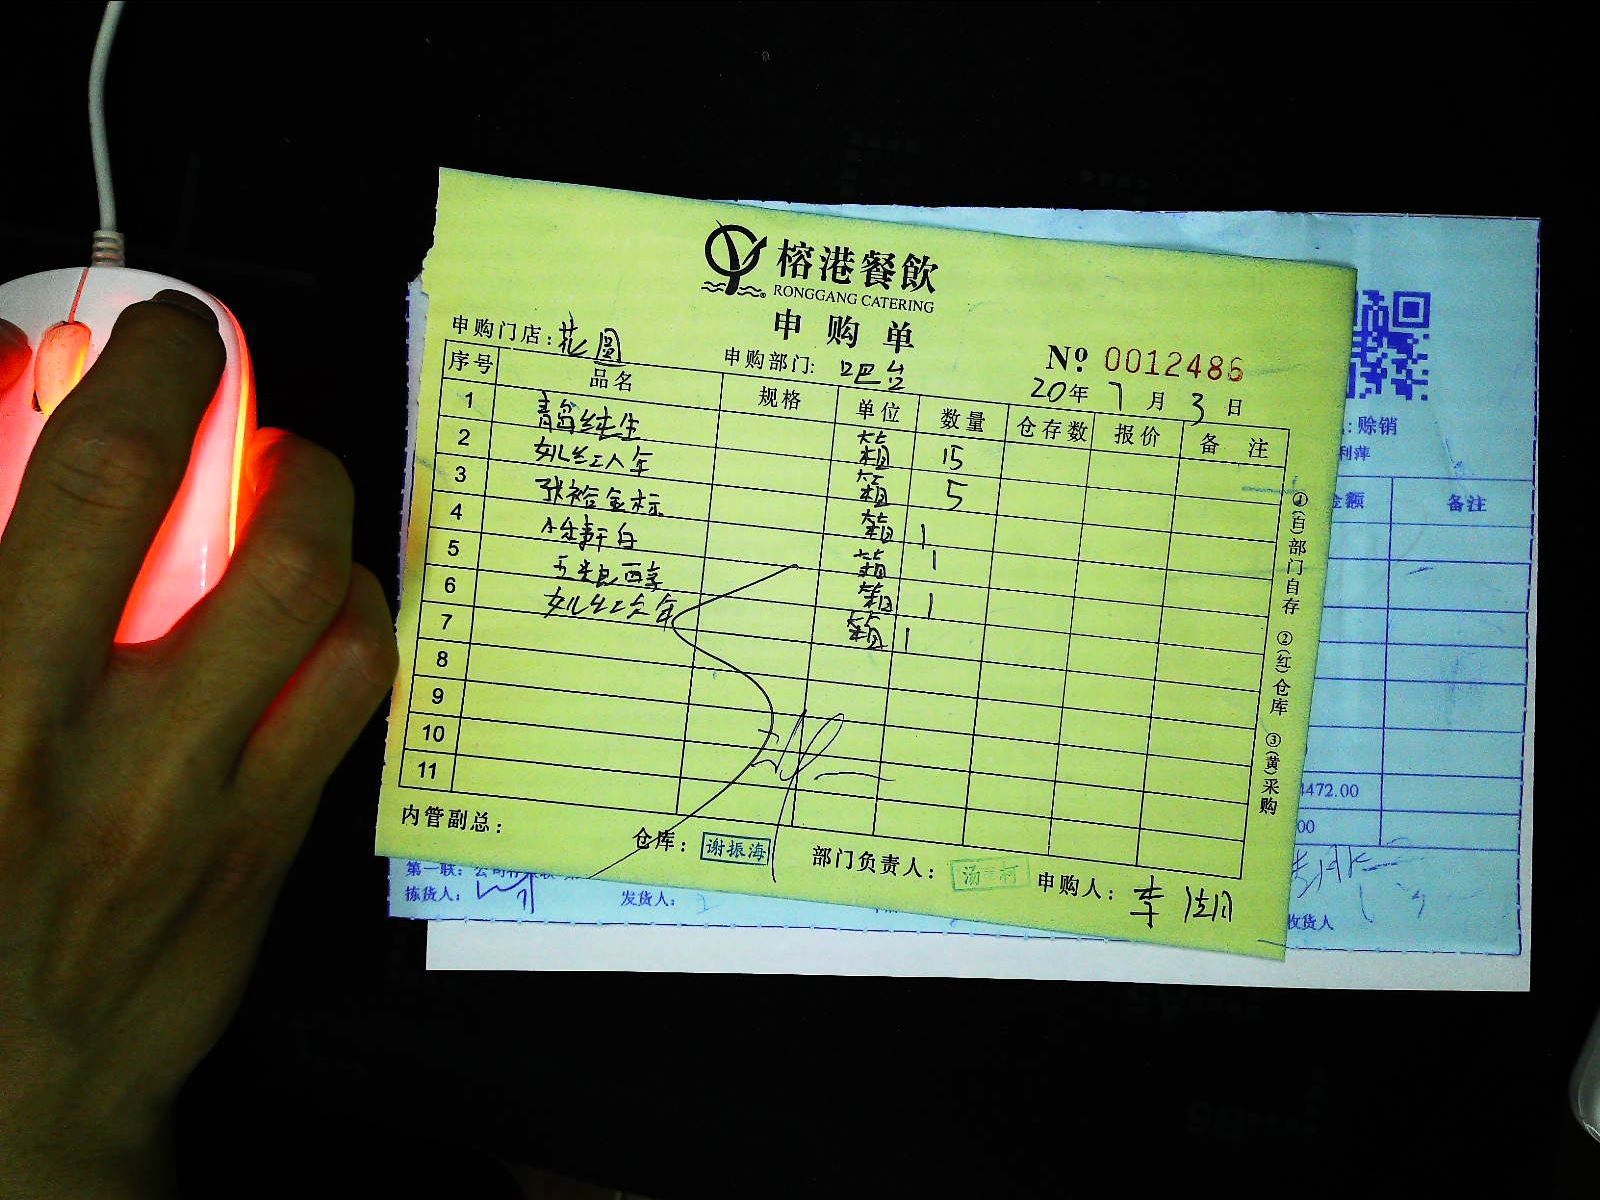 榕港餐飲
RONGGANG CATERING
申购单
申购门店:花圆 申购部门:吧台 Nº 0012486
20年7月3日
序号 品名 规格 单位 数量 仓存数 报价 备注
1 青岛纯生 箱 15
2 女儿红八年 箱 5
3 张裕金标 箱 1
4 干白 箱 1
5 五粮醇 箱 1
6 女儿红六年 箱 1
7
8
9
10
11
内管副总: 仓库:谢振海 部门负责人: 申购人:李
①(白)部门自存 ②(红)仓库 ③(黄)采购
:赊销
利萍
金额 备注
4472.00
00
第一联:
拣货人: 发货人: 收货人